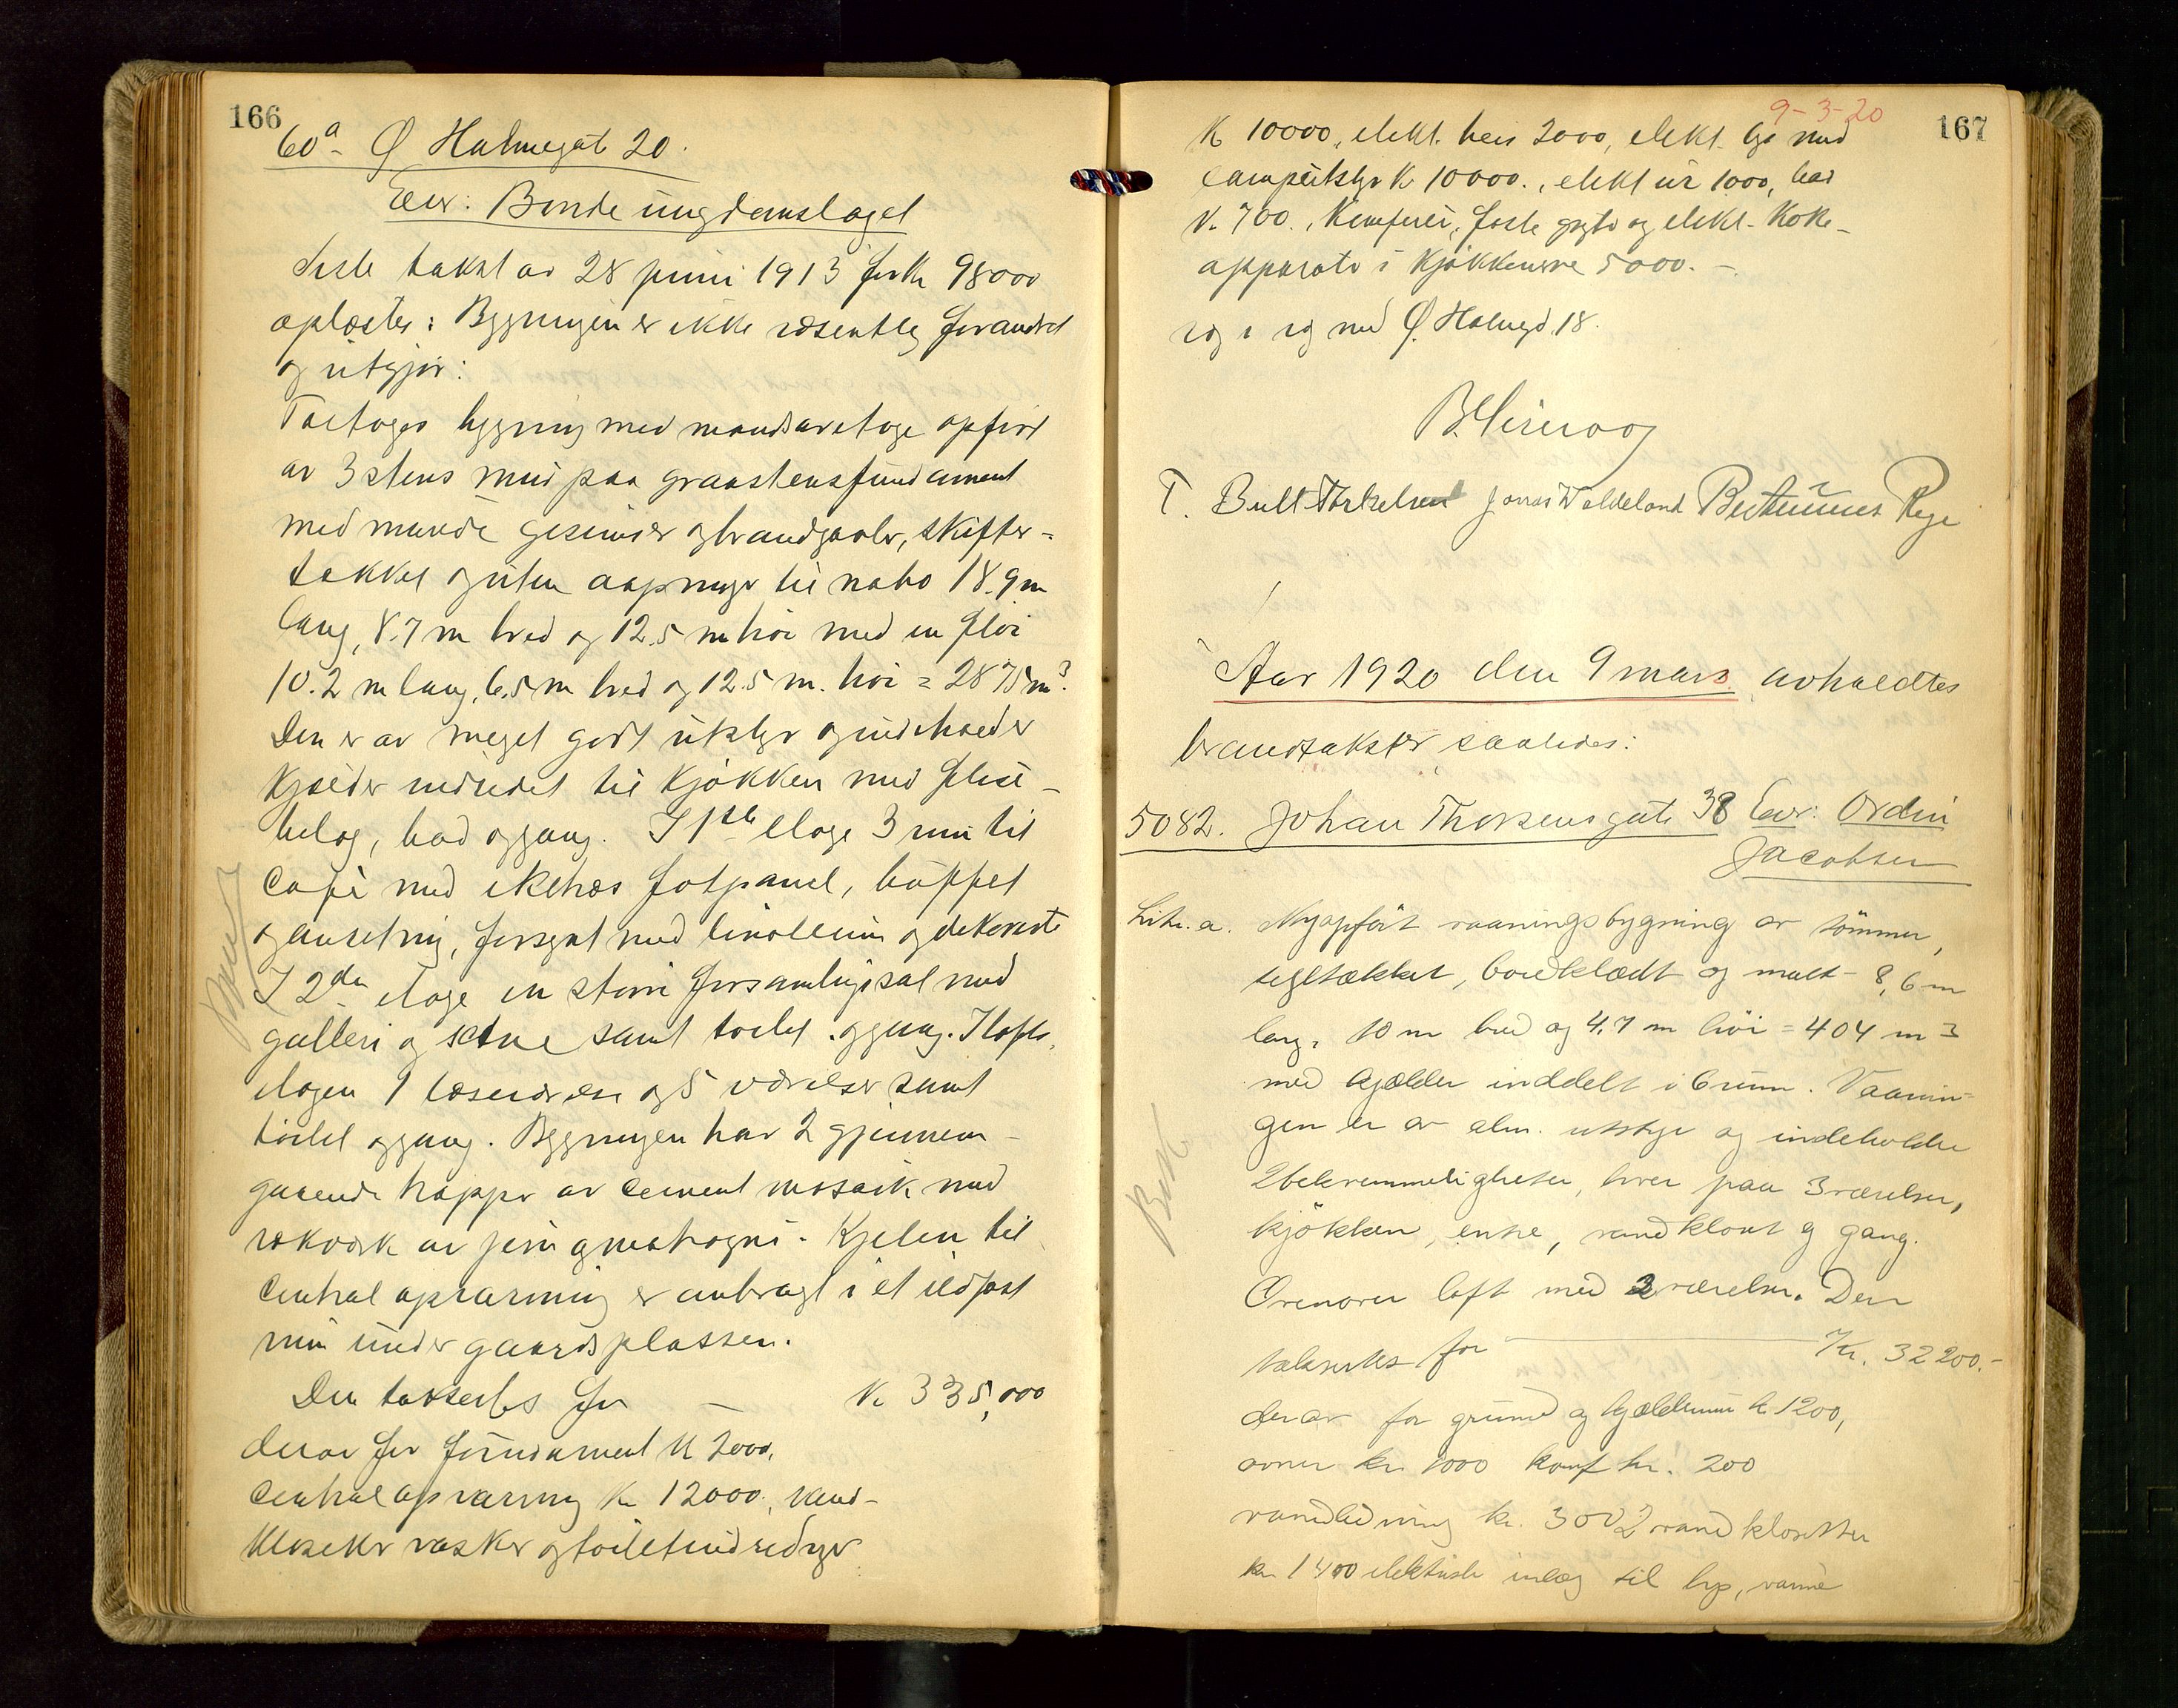 166
60a - Ø Holmegate 20.
Eier: Bondeungdomslaget
Siste takst av 28 juni 1913 for Kr 98000
oplæstes: Bygningen er ikke væsentlig forandret
og utgjør:
Toetages bygning med mandsaretage opført
av 3 stens mur paa graastensfundament
med murede gesimser og brandgavler, skifer-
tækket og uten aapninger til nabo 18.9 m
lang, 8.7 m bred og 12.5 m høi med en fløi
10.2 m lang, 6,5 m bred og 12.5 m. høi = 2875 m³.
Den er av meget godt utstyr og indeholder
Kjælder indredet til Kjøkken med flise-
belæg, bad og gang. I 1ste etage 3 rum til
Café med eketræs fotpanel, büffet
og anretning, forsynt med linoleum og dekorerte
I 2den etage en større forsamlingssal med
galleri og scene samt toilet og gang. I lofts-
etagen 1 læseværelse og 5 værelser samt
toilet og gang. Bygningen har 2 gjennem-
gaaende trapper av cement mosaik med
rekværk av jern og mahogni. Kjelen til
Centralopvarming er anbragt i et ildfast
rum under gaardsplassen.
Den takseres for — Kr 335,000
derav for fundament Kr 2000,
Centralopvarming Kr 12000, vand-
Kloseter vasker og toiletindredninger
9-3-20
167
Kr 10000, elekt. heis 2000, elekt. lys med
lampeutstyr Kr 10000., elekt ur 1000, bad
Kr. 700., Komfyrer, faste gryter og elekt. Koke-
apparater i Kjøkkenerne 5000. -
væg i væg med Ø. Holmegd. 18.
T. Bull Torkelsen Jonas Voldeland Berthinius Rege
Aar 1920 den 9 mars avholdtes
brandtakster saaledes:
5082. Johan Thorsensgate 38 Eier: Ordin
Jacobsen
Litr. a. Nyopført vaaningsbygning av tömmer,
tegltækket, bordklædt og malt - 8,6 m
lang, 10 m bred og 4,7 m höi = 404 m³
med kjælder inddelt i 6 rum. Vaanin-
gen er av alm. utstyr og indeholder
2 bekvemmeligheter, hver paa 3 værelser,
kjökken, entre, vandklosett og gang.
Ovenover loft med 3 værelser. Den
takseres for — Kr. 32200.-
derav for grund og kjælderrum kr 1200,
ovner kr. 1000 komf kr. 200
vandledning kr. 300 2 vandklosetter
kr 1400 elektrisk inlæg til lys, varme